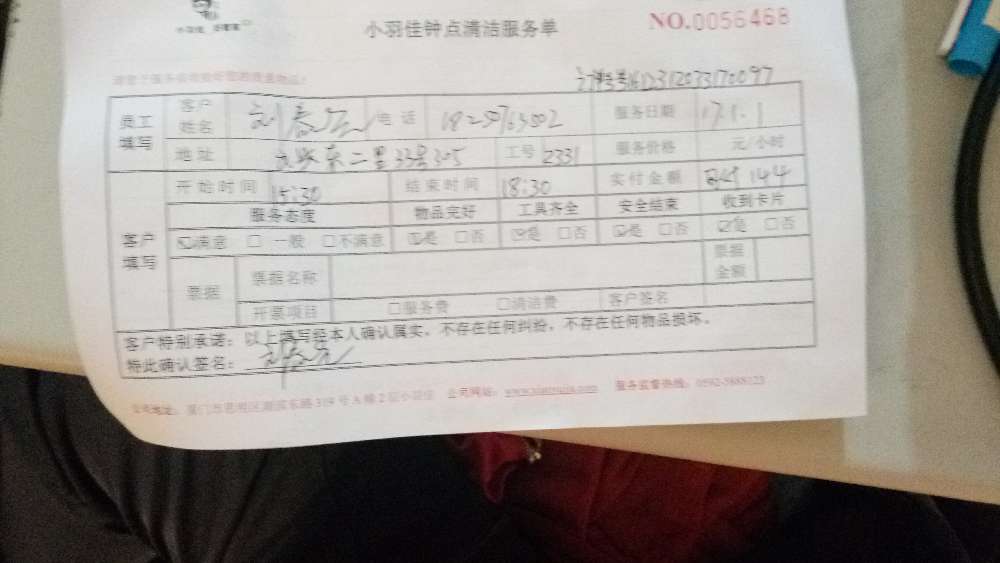 小羽佳钟点清洁服务单
NO.0056468
请您于服务前收捡好您的贵重物品!
员工填写 客户姓名 电话 18250763502 服务日期 17.1.1
地址 东二里33号305 工号 2331 服务价格 元/小时
开始时间 15:30 结束时间 18:30 实付金额 144
服务态度 物品完好 工具齐全 安全结束 收到卡片
客户填写 ☑满意 □一般 □不满意 ☑是 □否 ☑是 □否 ☑是 □否 ☑是 □否
票据 票据名称 票据金额
开票项目 □服务费 □清洁费 客户签名
客户特别承诺：以上填写经本人确认属实，不存在任何纠纷，不存在任何物品损坏。
特此确认签名：
公司地址：厦门市思明区湖滨东路319号A幢2层小羽佳 公司网站： 服务监督热线：0592-5888123